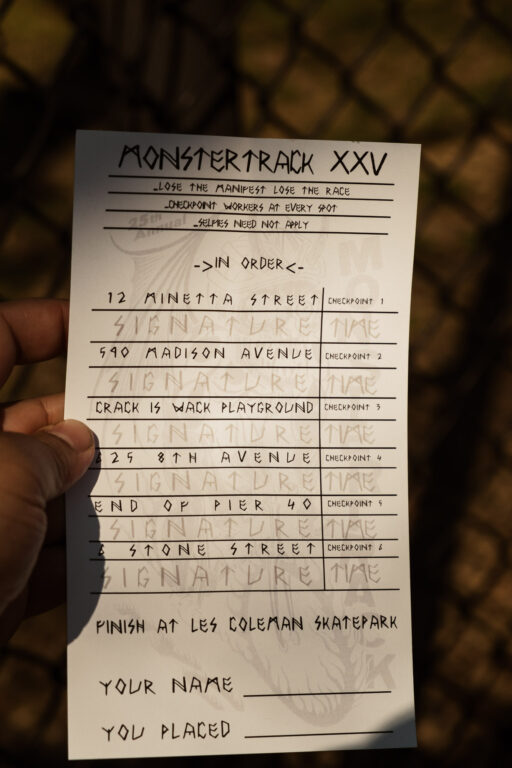 MONSTERTRACK XXV
..LOSE THE MANIFEST LOSE THE RACE
..CHECKPOINT WORKERS AT EVERY SPOT
..SELFIES NEED NOT APPLY
25th
Annual
->IN ORDER<-
12 MINETTA STREET CHECKPOINT 1
SIGNATURE TIME
590 MADISON AVENUE CHECKPOINT 2
SIGNATURE TIME
CRACK IS WACK PLAYGROUND CHECKPOINT 3
SIGNATURE TIME
825 8TH AVENUE CHECKPOINT 4
SIGNATURE TIME
END OF PIER 40 CHECKPOINT 5
SIGNATURE TIME
STONE STREET CHECKPOINT 6
SIGNATURE TIME
FINISH AT LES COLEMAN SKATEPARK
YOUR NAME
YOU PLACED